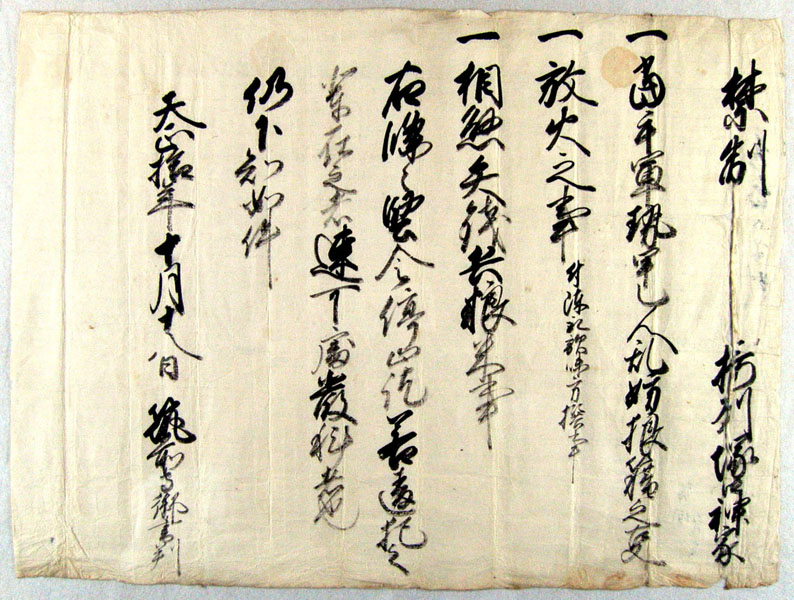 禁制　摂州塚口神家
一當手軍勢甲乙人乱妨狼藉之事
一放火之事　付陣取敵味方撰事
一相懸矢銭兵粮米事
右條々堅令停止訖若違犯之
輩在之者速可處厳科者也
仍下知如件
天正拾年十月十八日　筑前守御書判